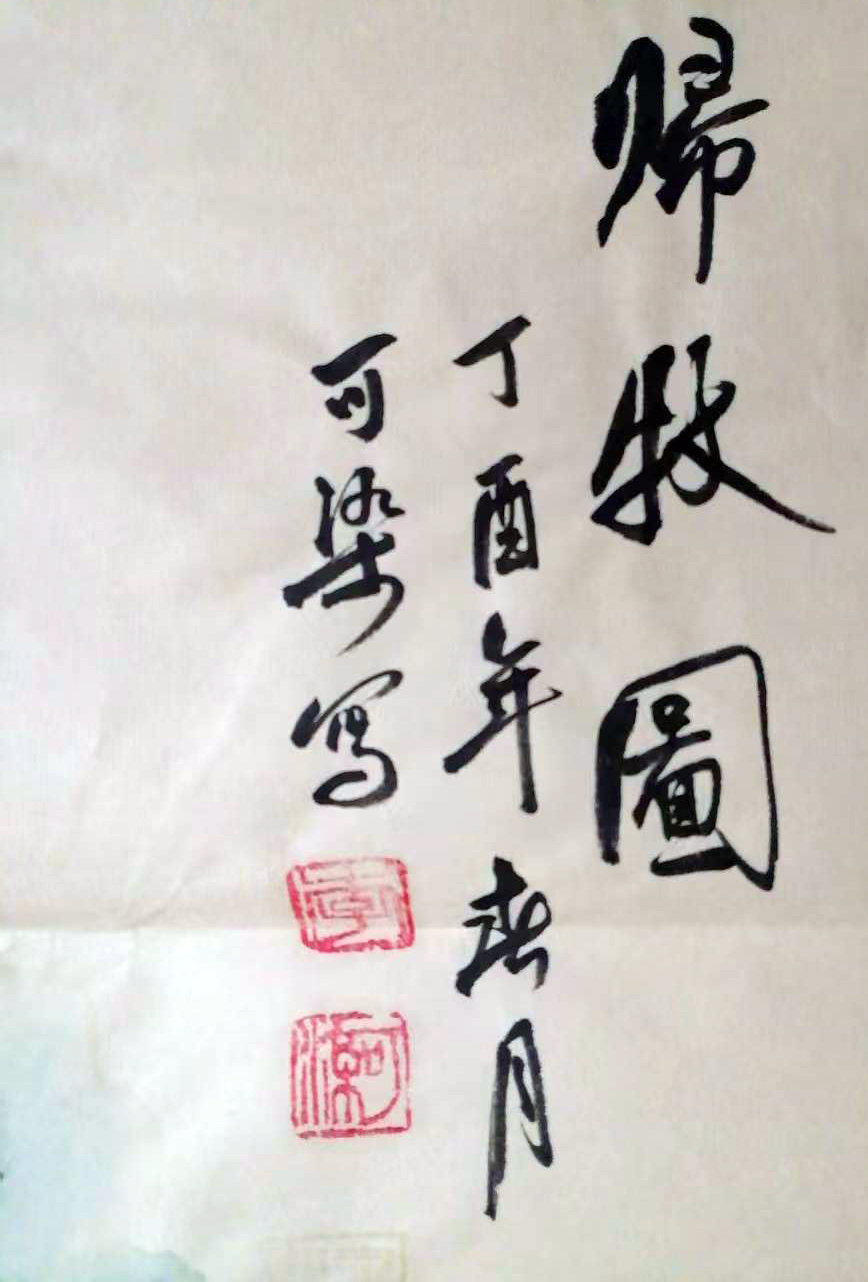 歸牧圖
丁酉年春月
可染寫
李
可染